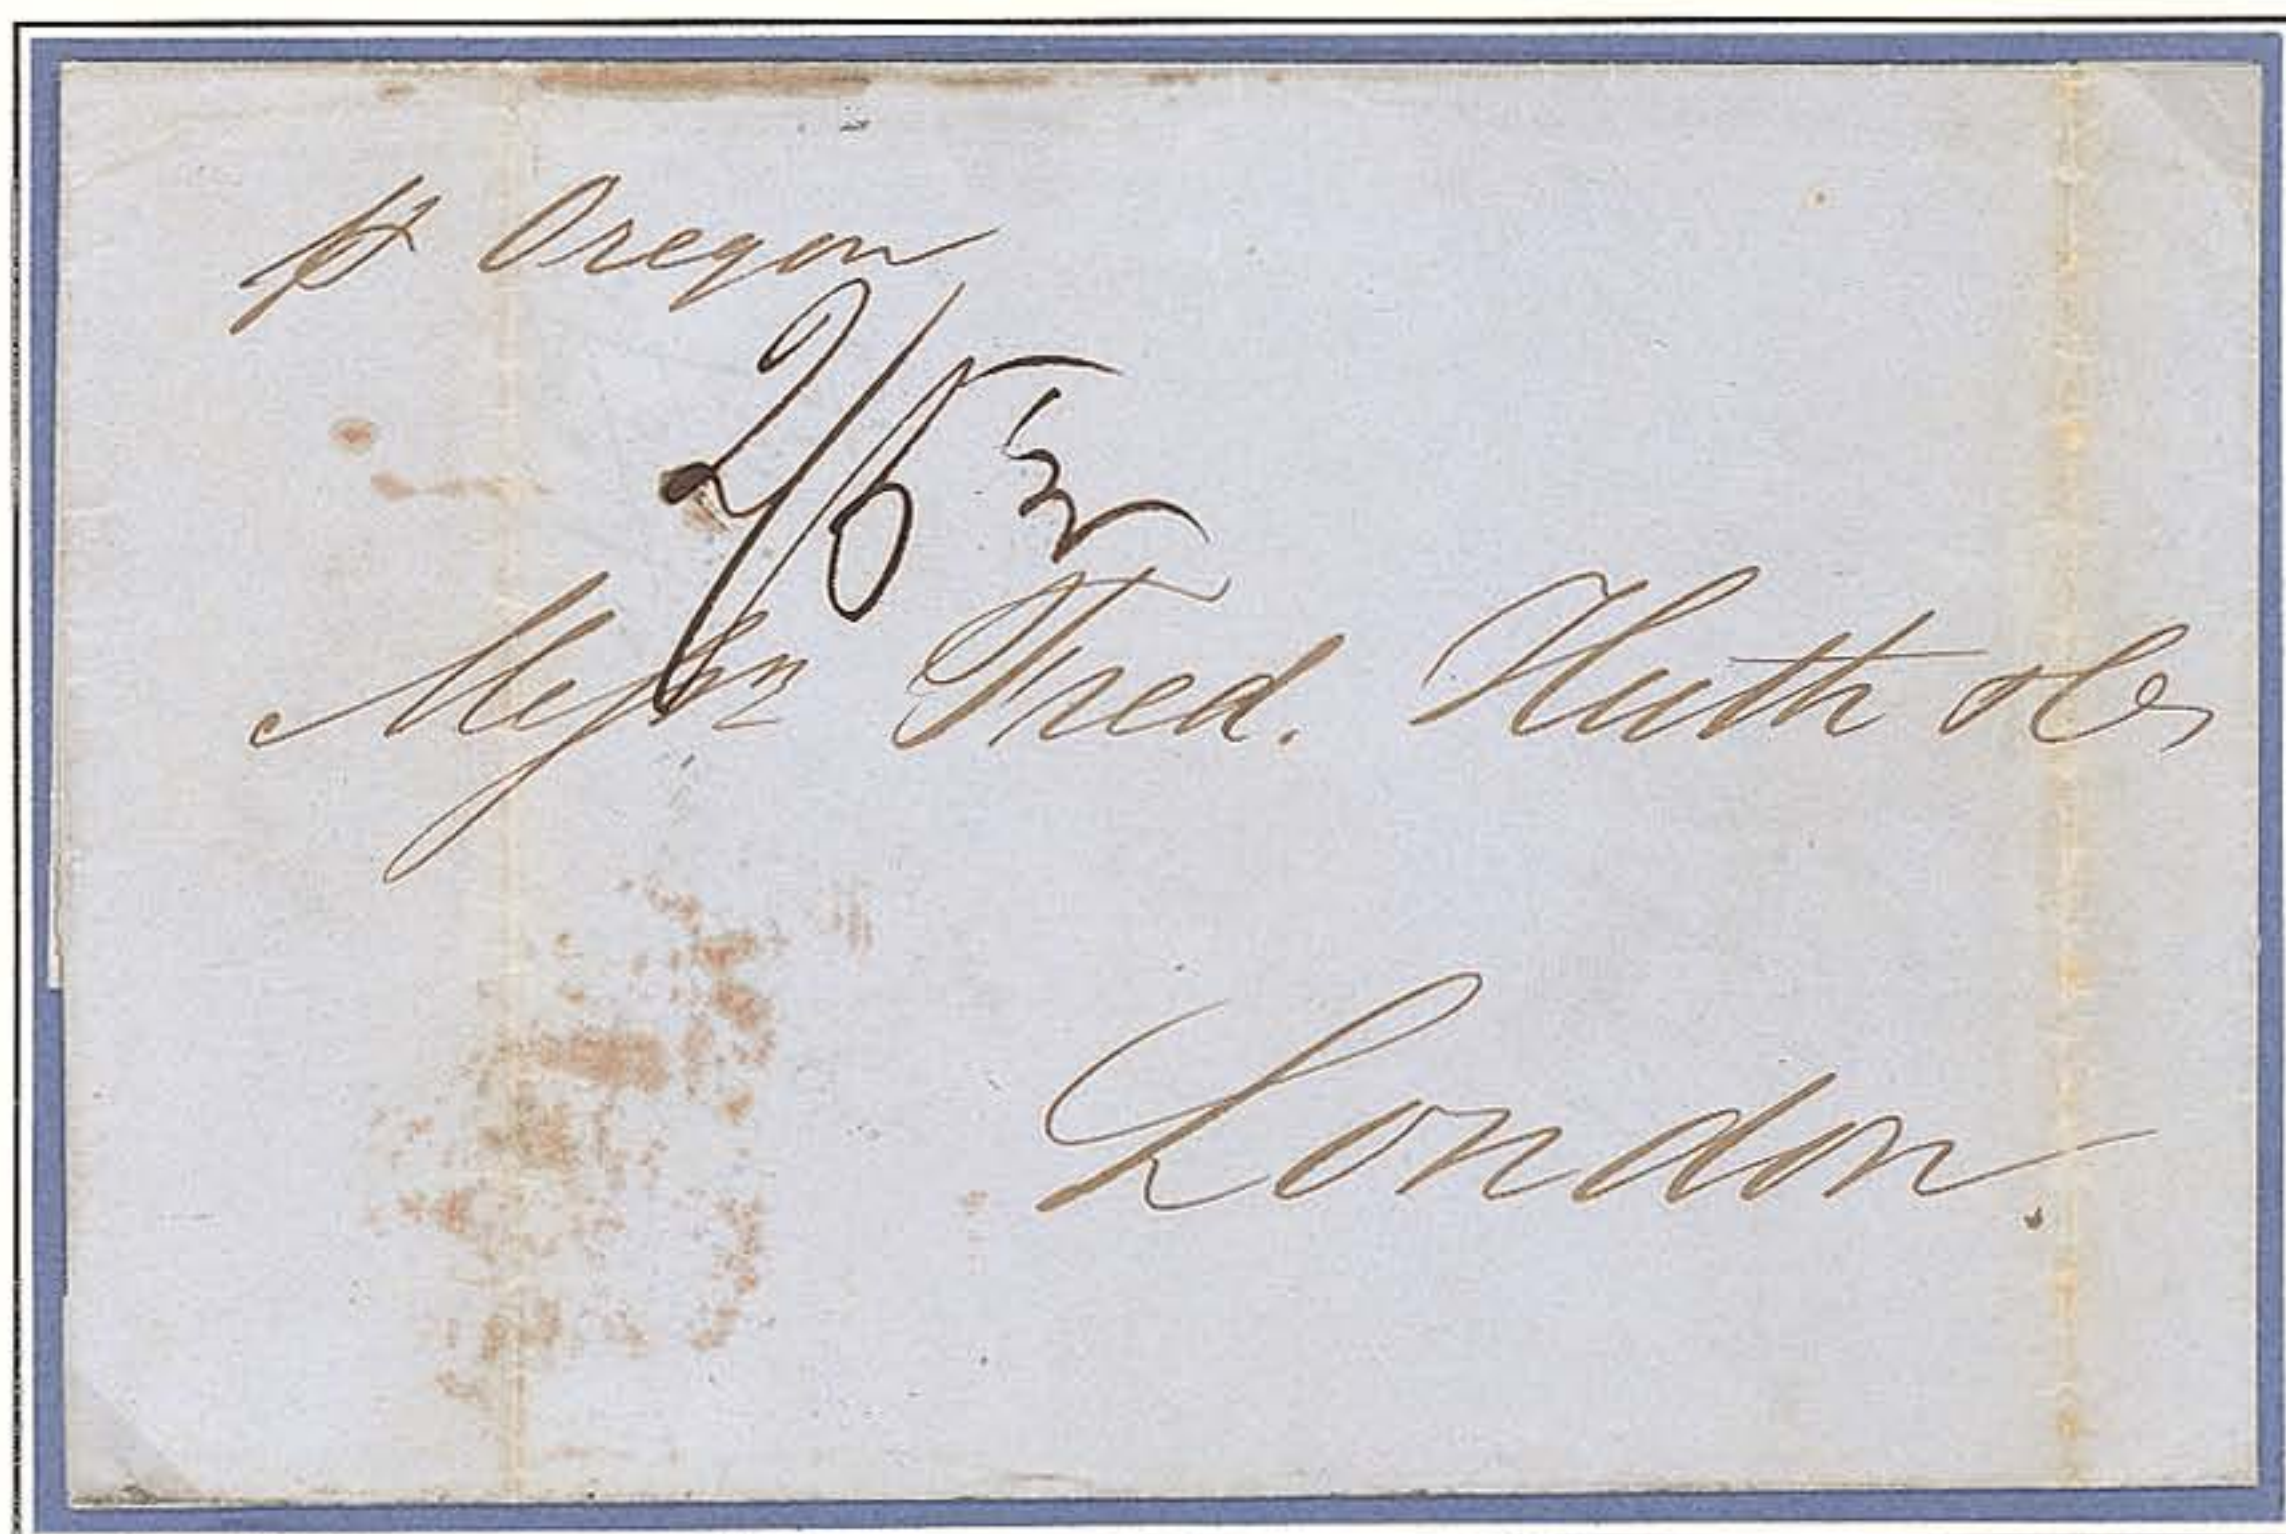 pr Oregon
2/5 ½
Messrs Fred. Huth & Co,
London.